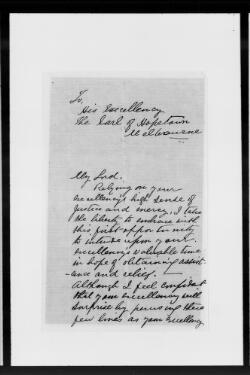 To,
His Excellency
The Earl of Hopetown
Melbourne
My Lord.
Relying on your
excellency's high sense of
justice and mercy, I take
the liberty to embrace with
this first opportunity
to intrude upon your
excellency's valuable time
in hope of obtaining assist
-ance and relief.
Although I feel confident
that your excellency will
surprise by perusing these
few lines as your excellency